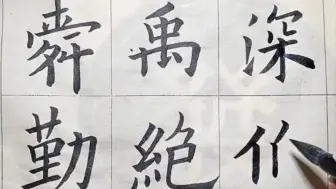 深
禹絶
舜勤